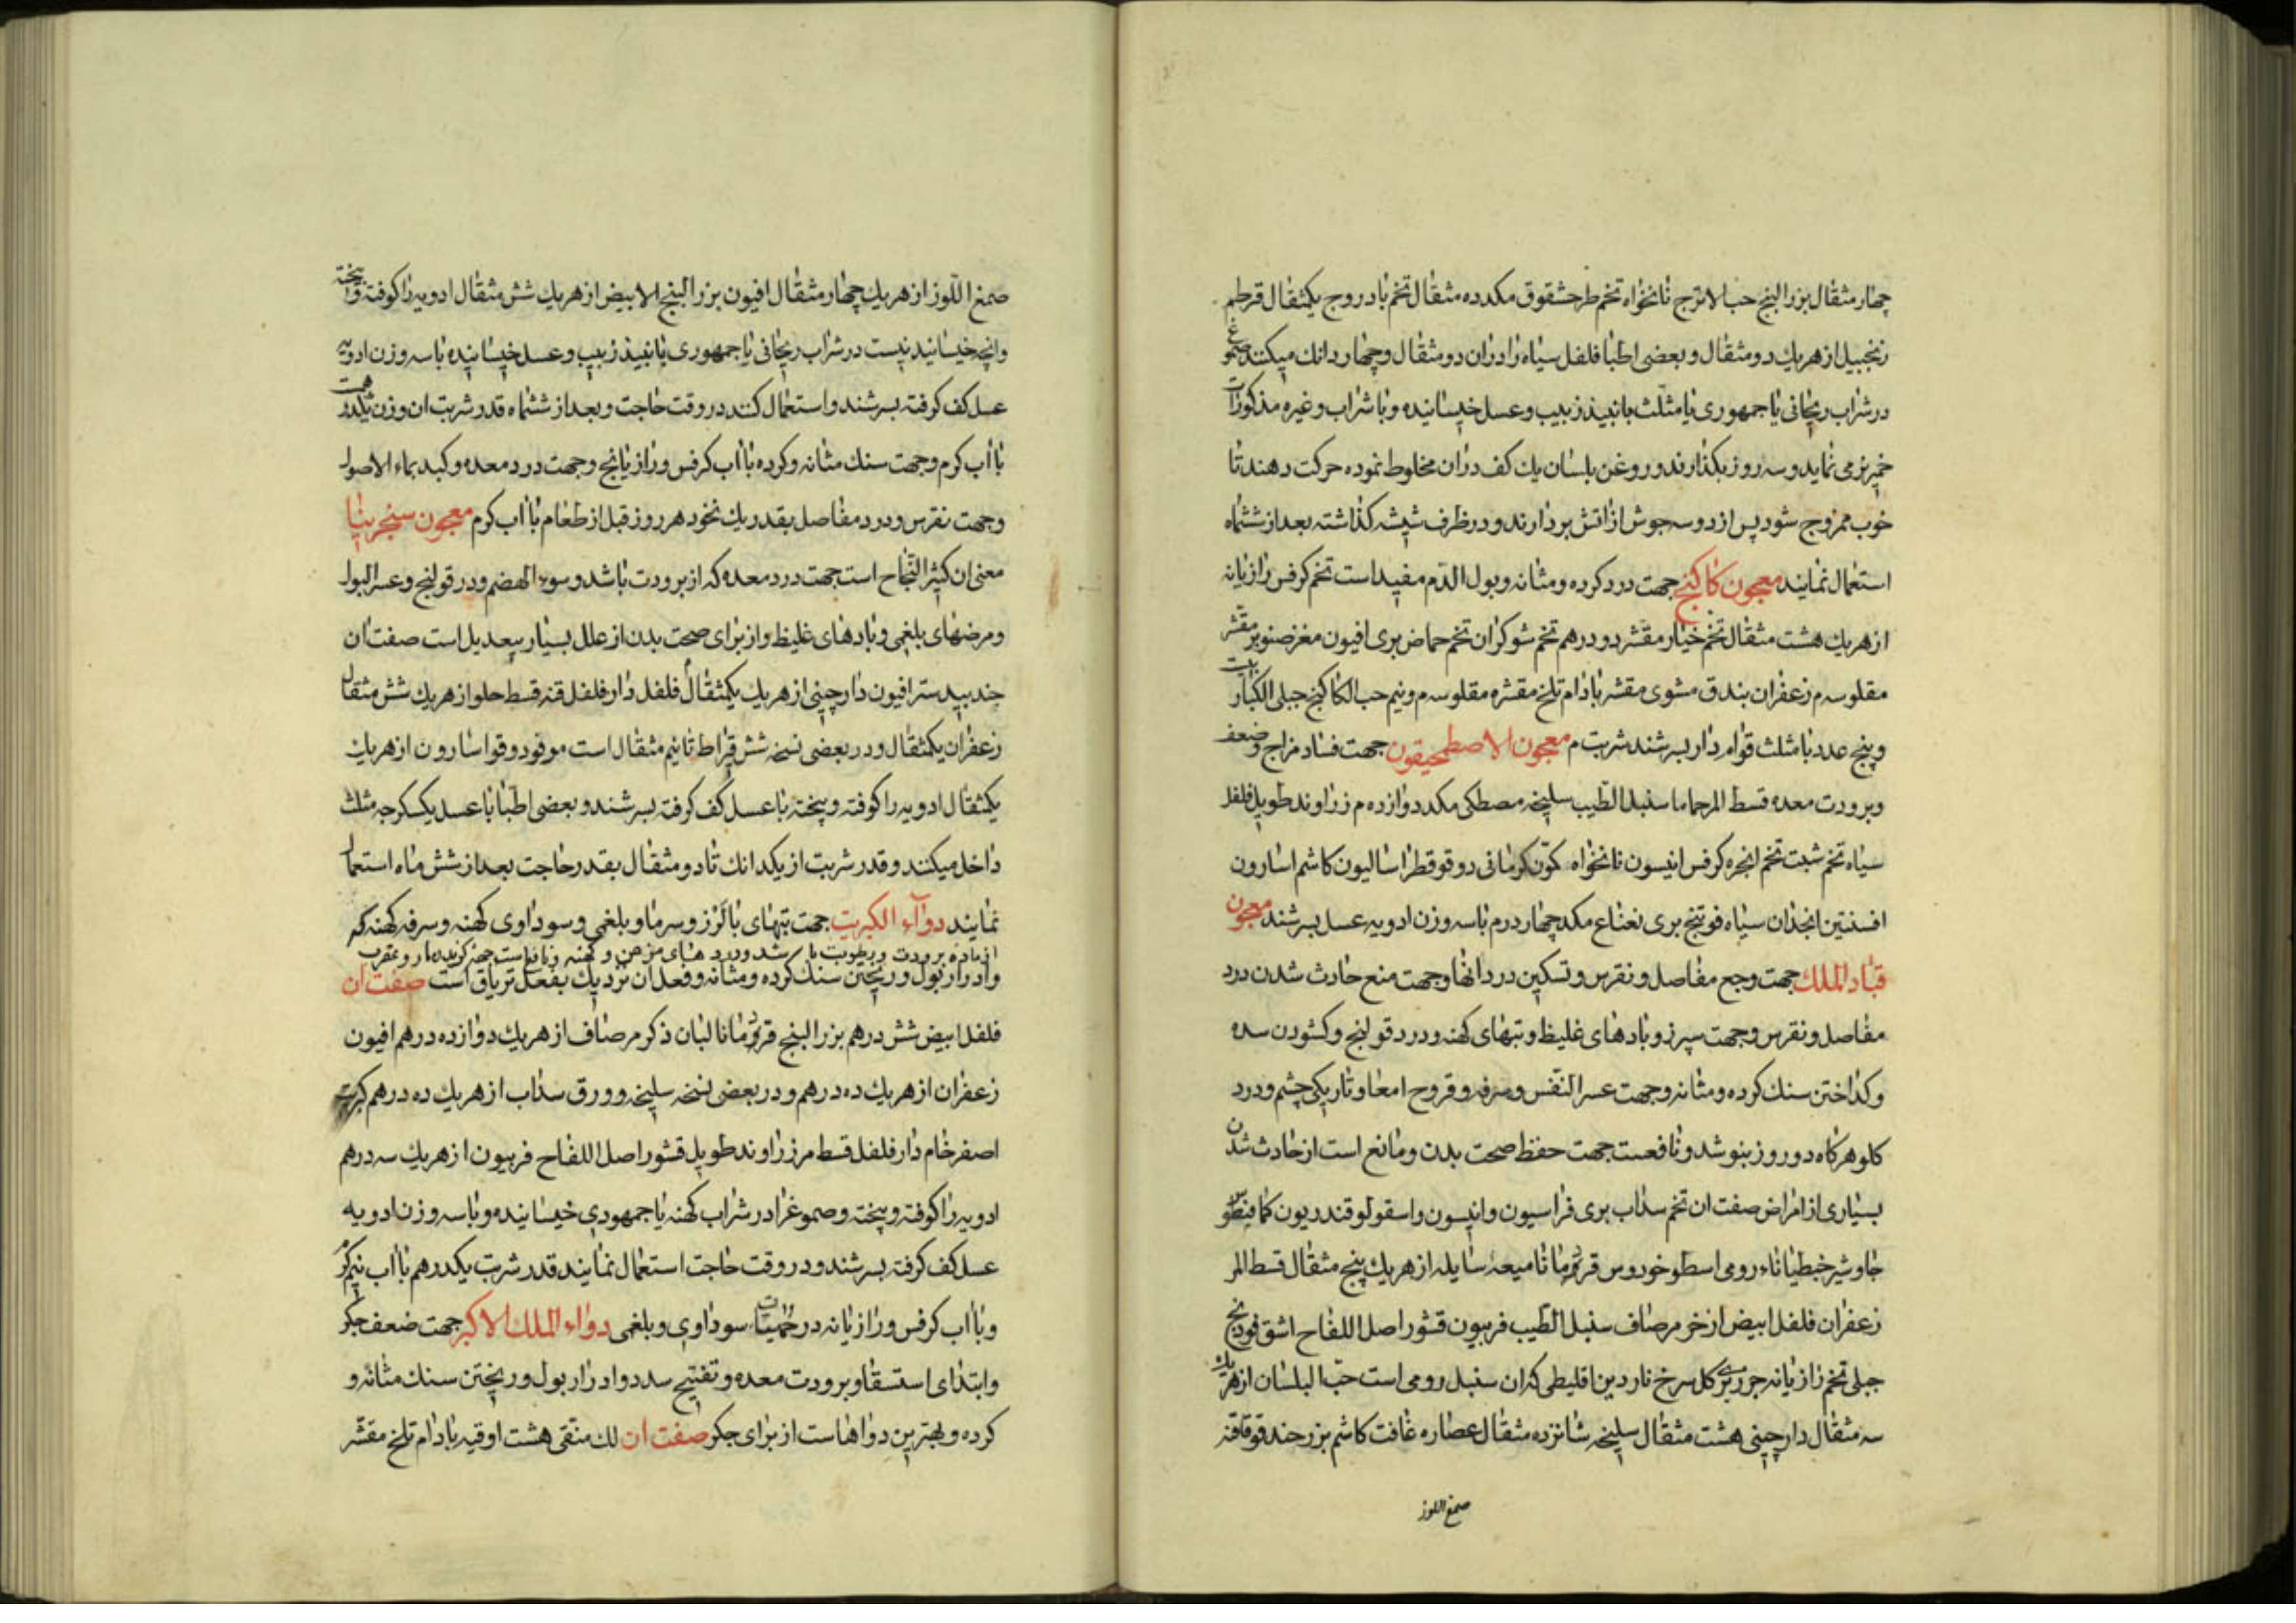 چهار مثقال بزر البنج حب الاترج نانخواه تخم طرحشقوق مکد ده مثقال تخم بادروج یکمثقال قرطم
زنجبیل از هریك دو مثقال و بعضی اطبا فلفل سیاه را دران دو مثقال و چهار دانك میکنند صمغ
در شراب ریحانی یا جمهوری یا مثلث یا نبیذ زبیب و عسل خیسانیده و با شراب و غیره مذکورات
خمیر نرمی نماید و سه روز بکذارند و روغن بلسان یك کف دران مخلوط نموده حرکت دهند تا
خوب ممزوج شود پس از دو سه جوش از اتش بردارند و در ظرف شیشه کذاشته بعد از ششماه
استعمال نمایند معجون کاکنج جهت درد کرده و مثانه و بول الدّم مفید است تخم کرفس رازیانه
از هریك هشت مثقال تخم خیار مقشر دو درهم تخم شوکران تخم حماض بری افیون مغز صنوبر مقشر
مقلو سه م زعفران بندق مشوی مقشر بادام تلخ مقشره مقلو سه م و نیم حب الکاکنج جبلی الکبار بیست
و پنج عدد با مثلث قوام دار بسرشند شربت م معجون الاصطمحیقون جهت فساد مزاج و ضعف
و برودت معده قسط المر حماما سنبل الطّیب سلیخه مصطکی مکد دوازده م زراوند طویل فلفل
سیاه تخم شبت تخم انجره کرفس انیسون نانخواه کمّون کرمانی دوقو قطراسالیون کاشم اسارون
افسنتین انجذان سیاه فوتنج بری نعناع مکد چهار درم با سه وزن ادویه عسل بسرشند معجون
قباد الملك جهت وجع مفاصل و نقرس و تسکین درد انها و جهت منع حادث شدن درد
مفاصل و نقرس و جهت سپرز و بادهای غلیظ و تبهای کهنه و درد قولنج و کشودن سده
و کداختن سنك کرده و مثانه و جهت عسر النّفس و سرفه و قروح امعا و تاریکی چشم و درد
کلو هرکاه دو روز بنوشد و نافعست جهت حفظ صحت بدن و مانع است از حادث شدن
بسیاری از امراض صفت ان تخم سداب بری فراسیون و انیسون و اسقولوقندریون کمافیطوس
جاوشیر جنطیانا رومی اسطوخودوس قردمانا میعهٔ سایله از هریك پنج مثقال قسط المر
زعفران فلفل ابیض اذخر مر صاف سنبل الطّیب فربیون قشور اصل اللفاح اشق فودنج
جبلی تخم رازیانه جزر بری کل سرخ ناردین اقلیطی که ان سنبل رومی است حبّ البلسان از هریك
سه مثقال دارچینی هشت مثقال سلیخه شانزده مثقال عصاره غافت کاشم بزر حندقوقا قنه
صمغ اللوز
صمغ اللّوز از هریك چهار مثقال افیون بزر البنج الابیض از هریك شش مثقال ادویه را کوفته و بیخته
و انچه خیسانیدنیست در شراب ریحانی یا جمهوری یا نبیذ زبیب و عسل خیسانیده با سه وزن ادویه
عسل کف کرفته بسرشند و استعمال کنند در وقت حاجت و بعد از ششماه قدر شربت ان وزن یکدرهم است
با اب کرم و جهت سنك مثانه و کرده با اب کرفس و رازیانج و جهت درد معده و کبد بماء الاصول
و جهت نقرس و درد مفاصل بقدر یك نخود هر روز قبل از طعام با اب کرم معجون سنجرینیا
معنی ان کثیر النّجاح است جهت درد معده که از برودت باشد و سوء الهضم و درد قولنج و عسر البول
و مرضهای بلغمی و بادهای غلیظ و از برای صحت بدن از علل بسیار بیعدیل است صفت ان
جندبیدستر افیون دارچینی از هریك یکمثقال فلفل دارفلفل قنه قسط حلو از هریك شش مثقال
زعفران یکمثقال و در بعضی نسخه شش قیراط تا نیم مثقال است مو فو دوقو اسارون از هریك
یکمثقال ادویه را کوفته و بیخته با عسل کف کرفته بسرشند و بعضی اطّبا با عسل یکسکرجه مثلث
داخل میکنند و قدر شربت از یکدانك تا دو مثقال بقدر حاجت بعد از شش ماه استعمال
نمایند دوآء الکبریت جهت تبهای با لرز و سرما و بلغمی و سوداوی کهنه و سرفه کهنه که
از ماده برودت و رطوبت باشد و درد های مزمن و کهنه و نافعست جهة کزیدن مار و عقرب
و ادرار بول و ریختن سنك کرده و مثانه و فعل ان نزدیك بفعل تریاق است صفت ان
فلفل ابیض شش درهم بزر البنج قردمانا لبان ذکر مر صاف از هریك دوازده درهم افیون
زعفران از هریك ده درهم و در بعضی نسخه سلیخه و ورق سداب از هریك ده درهم کبریت
اصفر خام دارفلفل قسط مر زراوند طویل قشور اصل اللفاح فربیون از هریك سه درهم
ادویه را کوفته و بیخته و صموغ را در شراب کهنه یا جمهوری خیسانیده و با سه وزن ادویه
عسل کف کرفته بسرشند و در وقت حاجت استعمال نمایند قدر شربت یکدرهم با اب نیم کرم
و با اب کرفس و رازیانه در حمیّات سوداوی و بلغمی دواء الملك الاکبر جهت ضعف جکر
و ابتدای استسقا و برودت معده و تفتیح سدد و ادرار بول و ریختن سنك مثانه و
کرده و بهترین دواهاست از برای جکر صفت ان لك منقی هشت اوقیه بادام تلخ مقشّر